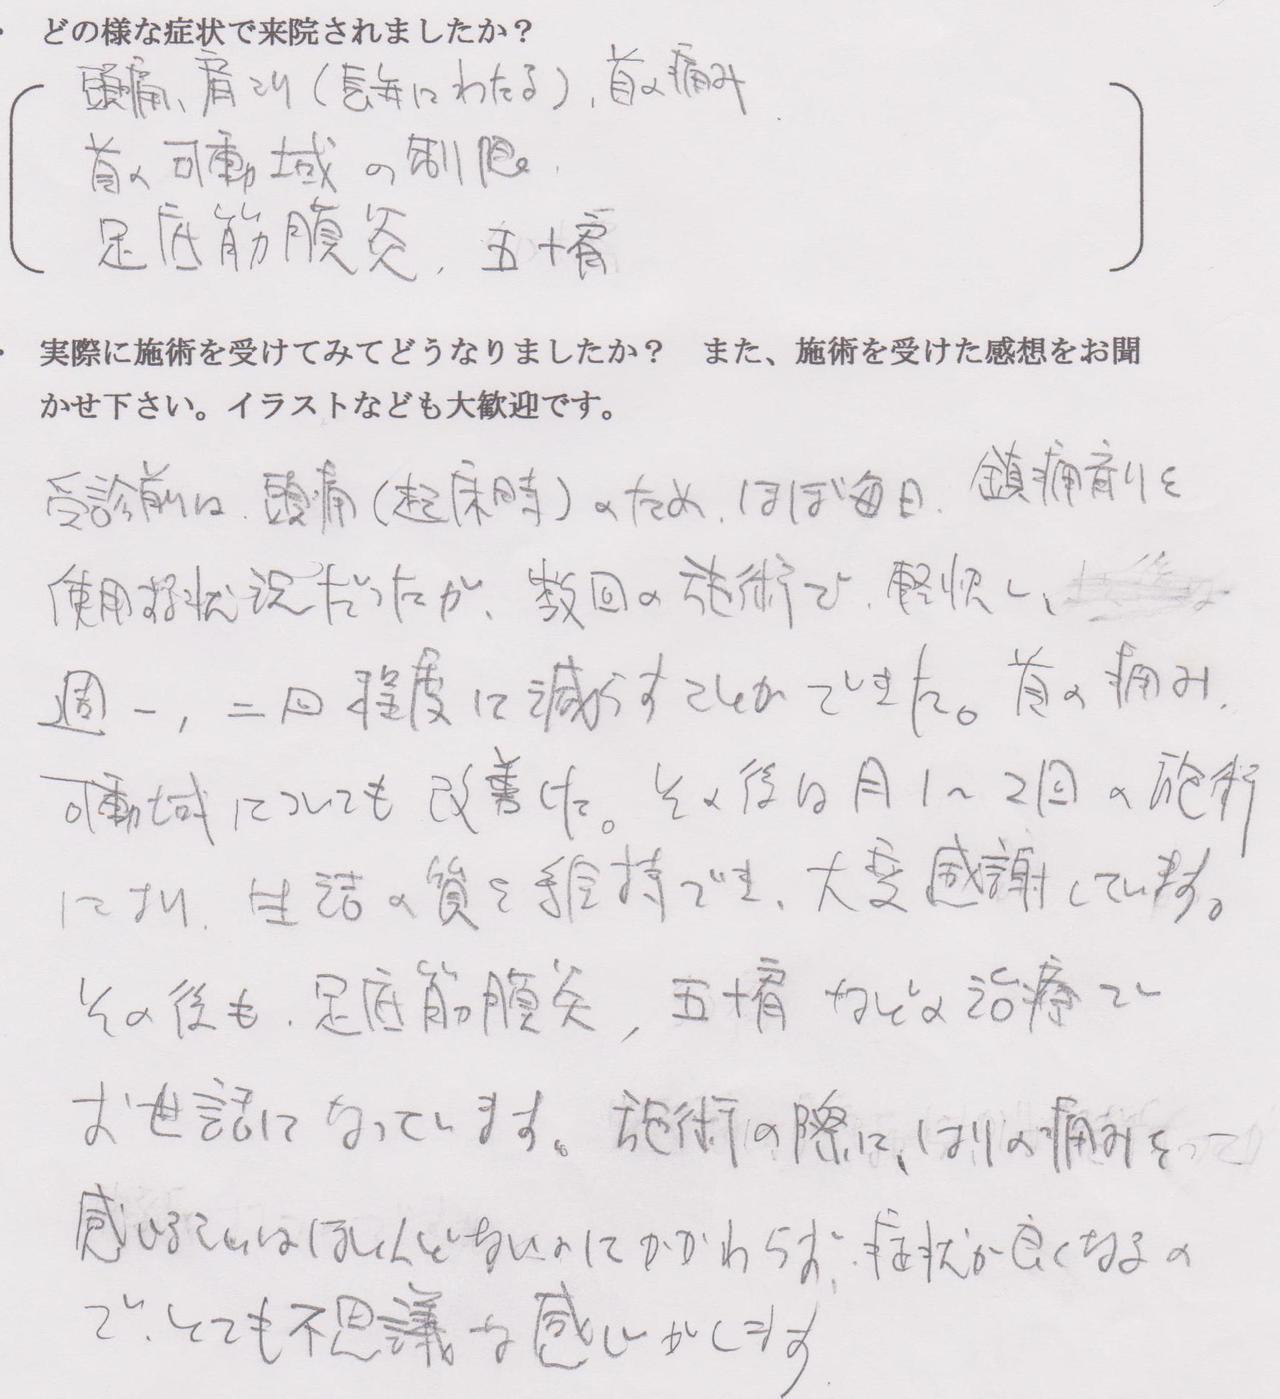 ・ どの様な症状で来院されましたか？
頭痛、肩こり（長年にわたる）、首の痛み
首の可動域の制限、
足底筋膜炎、五十肩
・ 実際に施術を受けてみてどうなりましたか？　また、施術を受けた感想をお聞
かせ下さい。イラストなども大歓迎です。
受診前は、頭痛（起床時）のため、ほぼ毎日、鎮痛剤を
使用する状況だったが、数回の施術で、軽快し、
週一，二回程度に減らすことができました。首の痛み、
可動域についても改善した。その後は月1～2回の施術
により、生活の質を維持でき、大変感謝しています。
その後も、足底筋膜炎，五十肩などの治療で
お世話になっています。施術の際に、はりの痛みを
感じることはほとんどないのにかかわらず、症状が良くなるの
で、とても不思議な感じがします